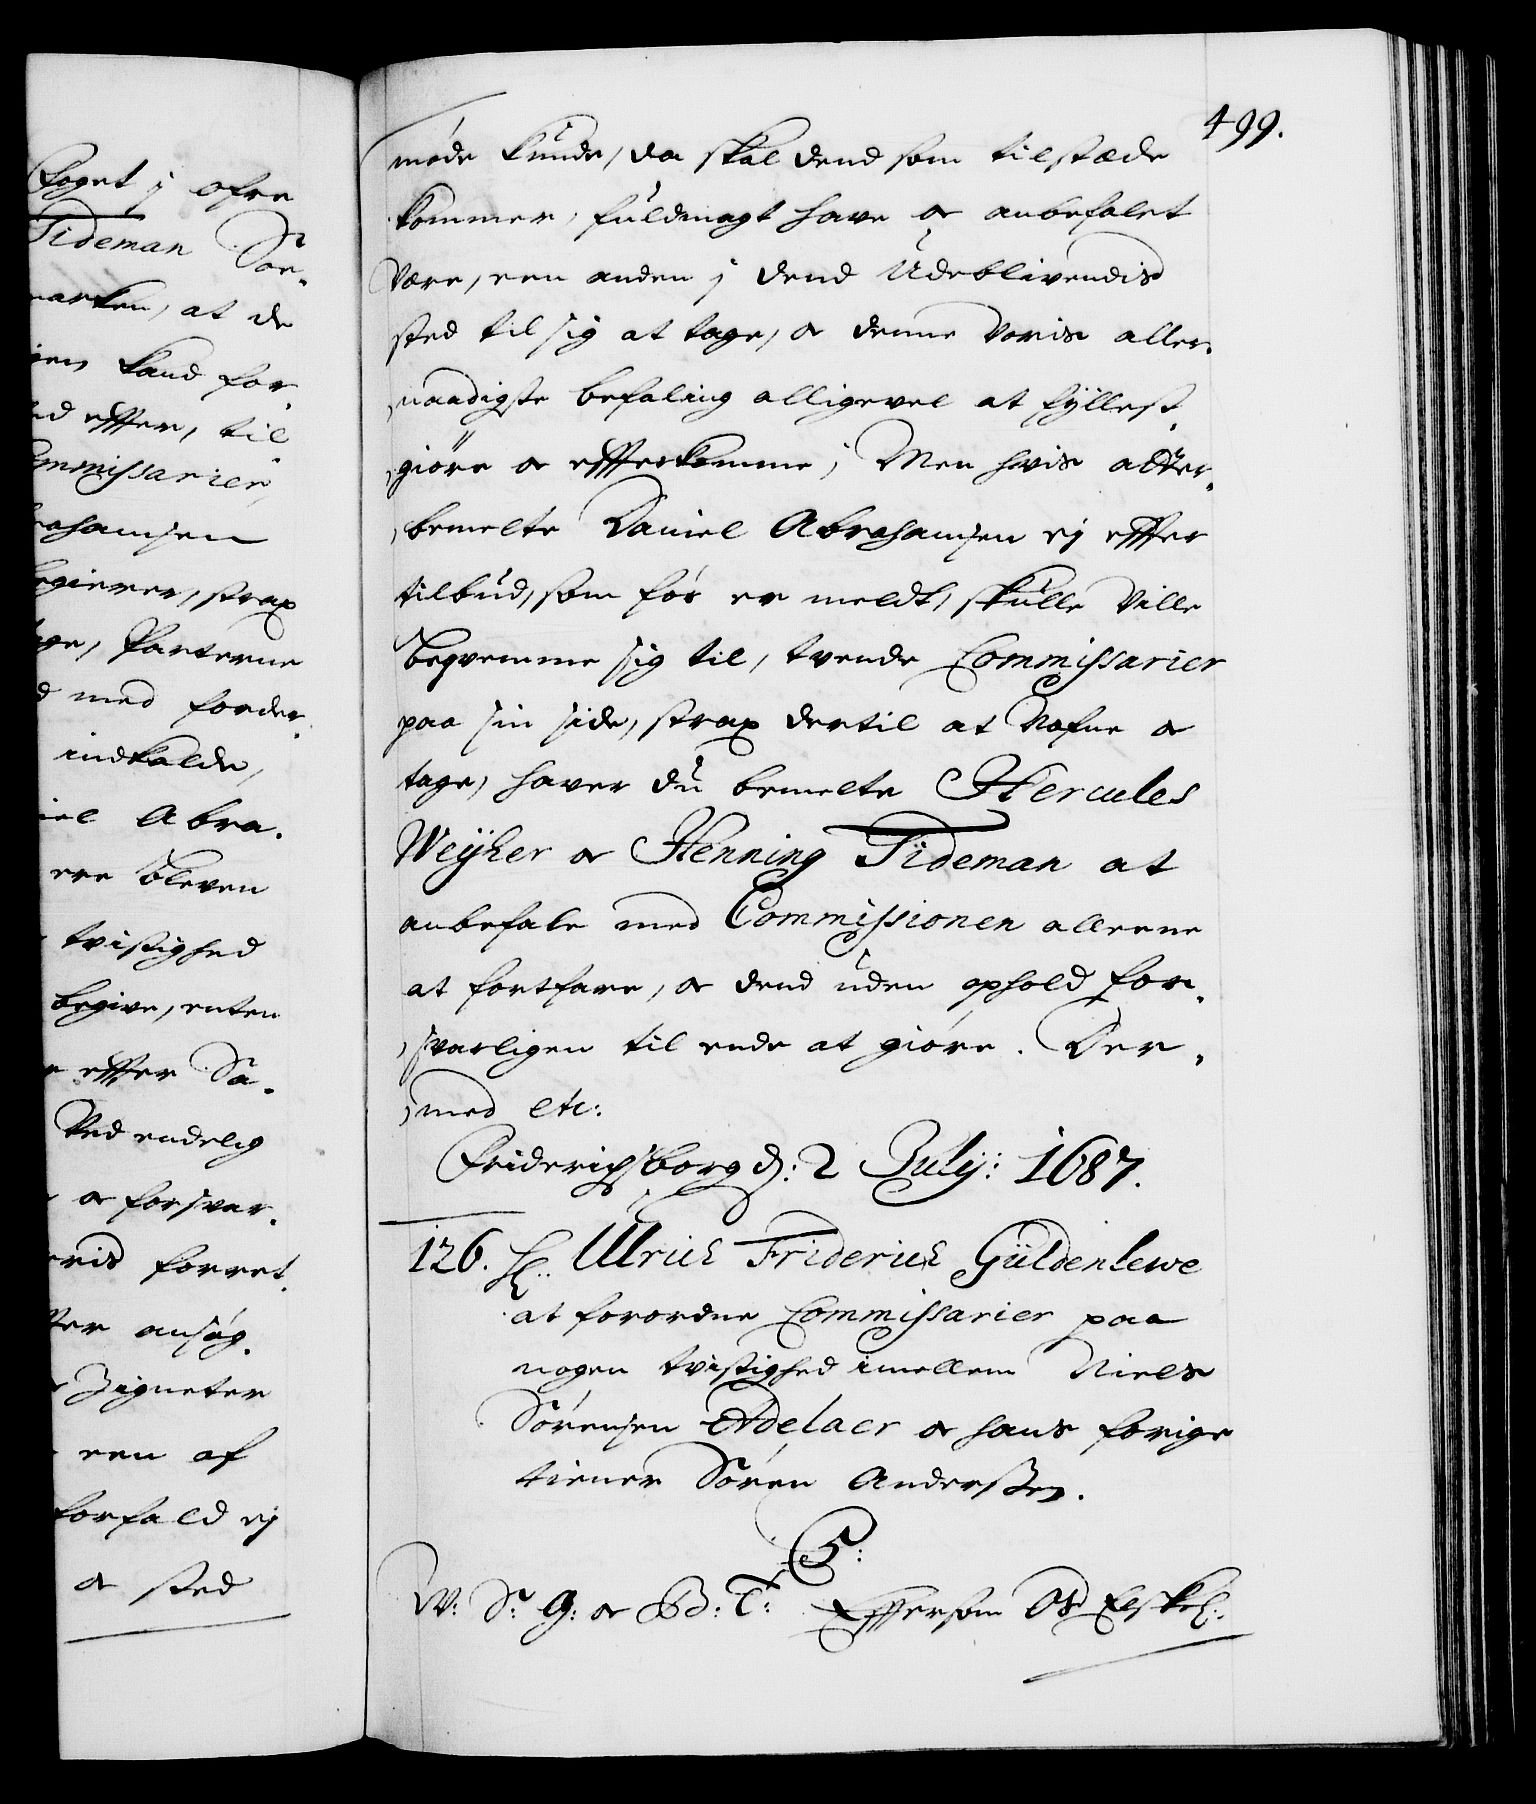 Foget i ofre
Tideman Soe-
marken, at de
kand for-
effter, til
Commissarier,
Abrahamsen
begierer, strax
Parterne
med forder-
indkalde,
Abra-
ere bleven
tvistighed
begive, enten
effter Sa-
Ved endelig
og forsvar-
forret-
ansøg-
Zigneter
een af
forfald ej
og sted
499.
møde kunde, da skal dend som tilstæde
kommer, fuldmagt have og anbefalet
være, een anden i dend Udeblivendis
sted til sig at tage, og denne Voris aller-
naadigste befaling alligevel at fyllest-
giøre og effterkomme; Men hvis after-
bemelte Daniel Abrahamsen ej effter
tilbud, som før er meldt, skulle Ville
beqvemme sig til, tvende Commissarier
paa sin side, strax dertil at Nafne og
tage, haver du bemelte Hercules
Weyher og Henning Tideman at
anbefale med Commissionen alleene
at fortfare, og dend uden ophold for-
svarligen til ende at giøre. Der-
med etc:
Friderichsborg d: 2 July: 1687.
126. H: Ulrich Friderich Güldenlewe
at forordne Commissarier paa
nogen tvistighed imellem Niels
Sørensen Adelaer og hans forige
tiener Søren Anderssen.
C5:
W: S: G: og B: T: Effersom Os Elskel: